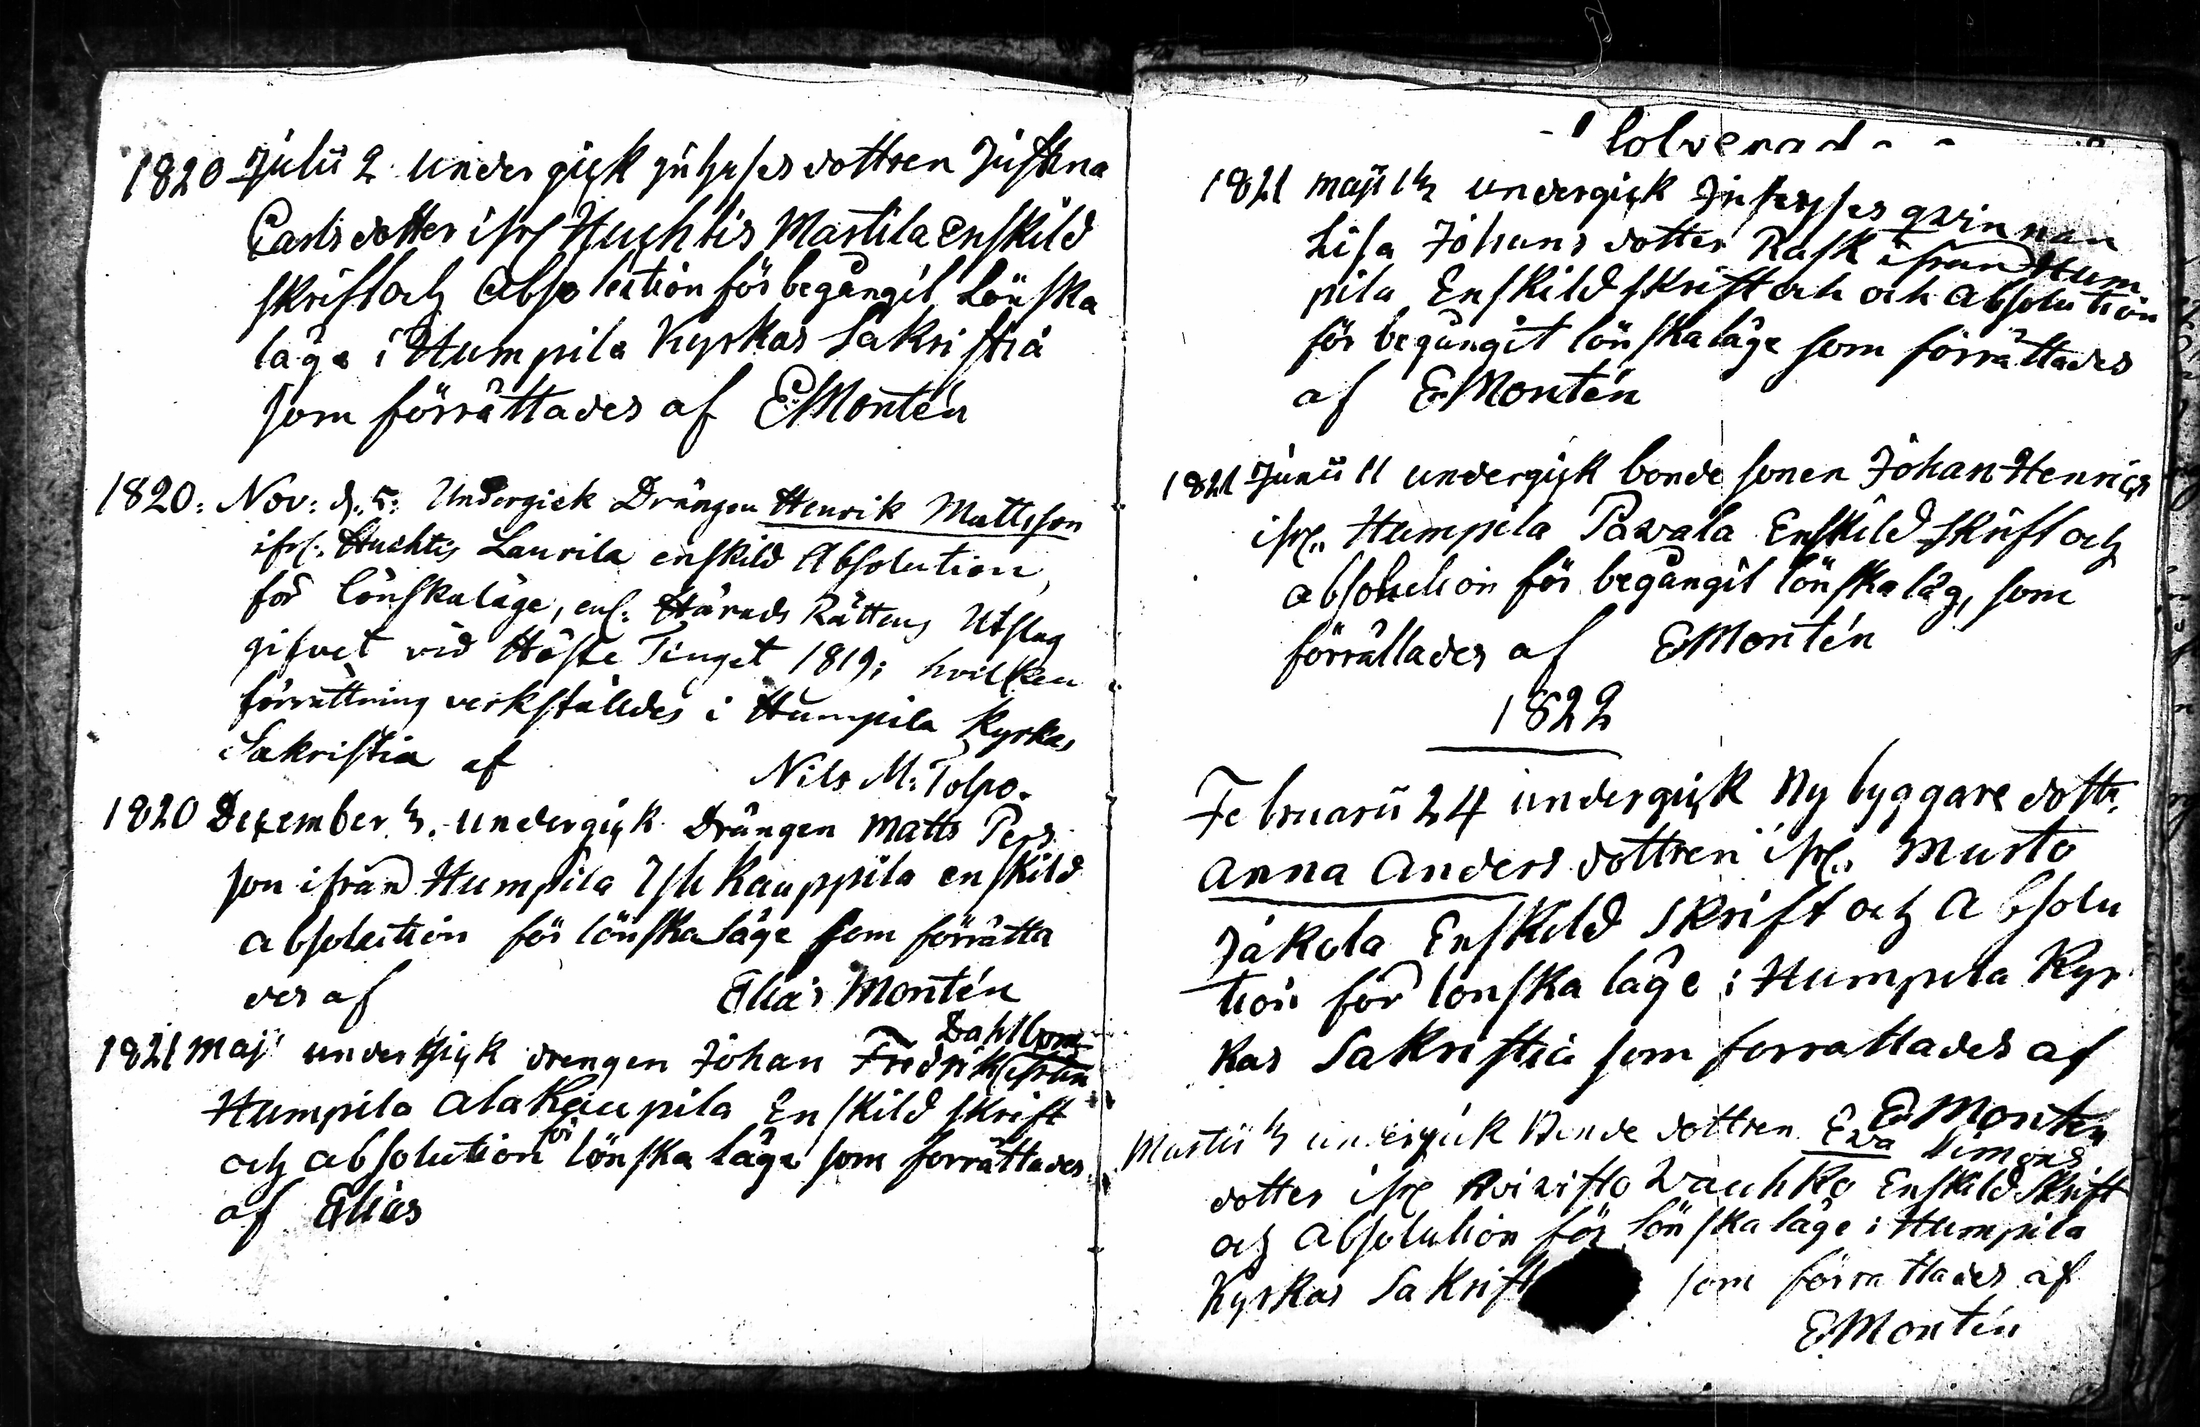 1820 Julii 2 undergick Inhyses dottren Justina
Carls dotter ifrå Huhtis Martila enskild
skrift och absolution för begångit Lönska
läge i Humpila Kyrkas Sakristia
som förrättades af EMontén
1820: Nov: d. 5: Undergick Drängen Henrik Mattsson
ifr: Huhtis Laurila enskild Absolution,
för Lönskaläge, enl: Härads Rättens Utslag
gifvet vid Höste Tinget 1819; hvilken
förrättning verkställdes i Humpila Kyrkas
Sakristia af
Nils M: Tolpo.
1820 December 3. undergick Drängen Matts Pers
son ifrån Humpila Yli Kauppila enskild
absolution för lönska läge som förrätta
des af Elias Montén
Dahlbom
1821 Maji undergick drengen Johan Fredrik ifrån
Humpila Ala Kaupila Enskild skrift
och absolution för lönska läge som förrättades
af Elias
1821 Maji 13 undergick Inhyses qvinnan
Lisa Johans dotter Rask ifrån Hum
pila Enskild skrift och och absolution
för begångit lönskaläge som förrättades
af EMontén
1821 Junii 11 undergick bonde sonen Johan Henrics
ifr. Humpila Pavala Enskild skrift och
absolution för begångit lönska läg, som
förrättades af EMontén
1822
Februarii 24 undergick Ny byggare dottr.
Anna Anders dottren ifr. Murto
Jakola Enskild skrift och Absolu
tion för lönska läge i Humpila Kyr
kas Sakristia som förrattades af
EMontén
Martii 3 undergick Bonde dottren Eva Simons
dotter ifr Koivisto Wauhko Enskild Skrift
och Absolution för lönska läge i Humpila
Kyrkas Sakrist som förrättades af
EMontén